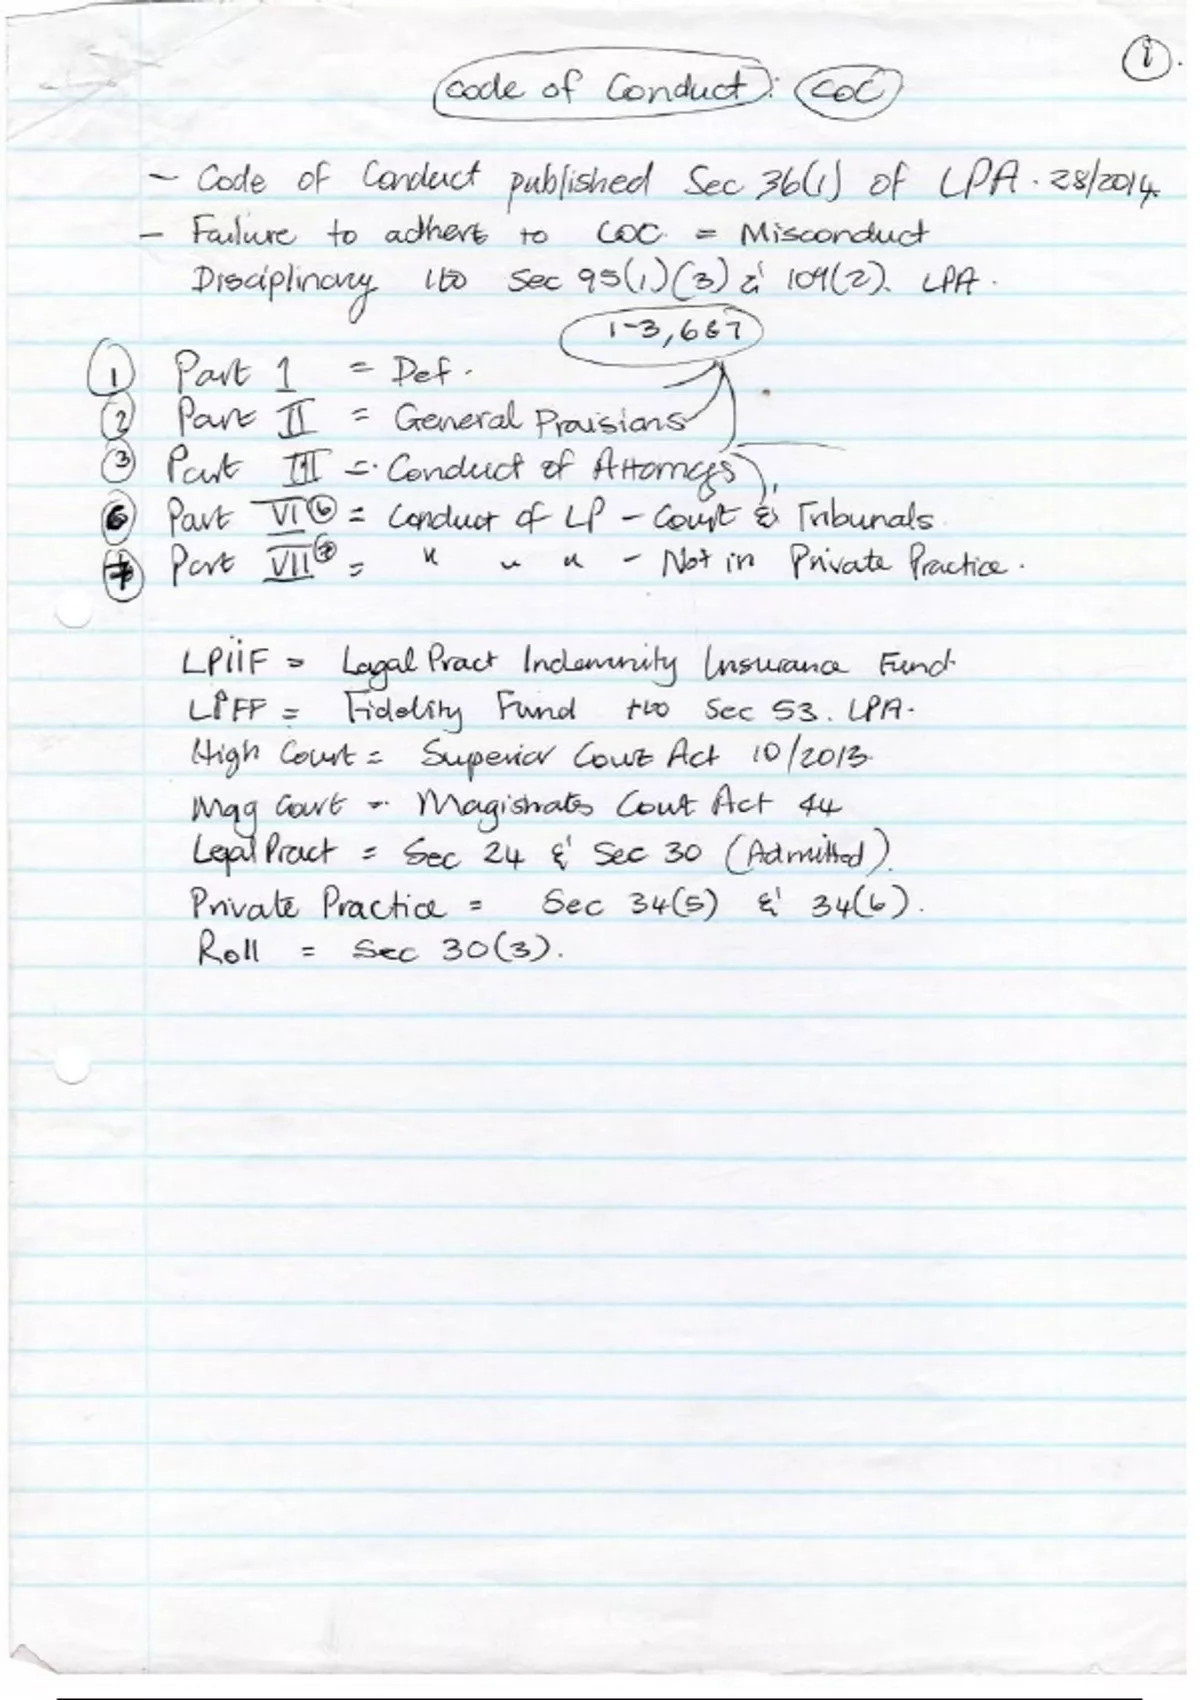 i
Code of Conduct: COC
- Code of Conduct published Sec 36(1) of LPA. 28/2014.
- Failure to adhere to COC = Misconduct
Disciplinary ito Sec 95(1)(3) & 109(2). LPA.
1-3, 6&7
1 Part 1 = Def.
2 Part II = General Provisions
3 Part III = Conduct of Attorneys
6 Part VI 6 = Conduct of LP - Court & Tribunals
7 Part VII 7 = " " " - Not in Private Practice.
LPIIF = Legal Pract Indemnity Insurance Fund
LPFF = Fidelity Fund ito Sec 53. LPA.
High Court = Superior Court Act 10/2013
Mag Court = Magistrats Court Act 44
Legal Pract = Sec 24 & Sec 30 (Admitted).
Private Practice = Sec 34(5) & 34(6).
Roll = Sec 30(3).